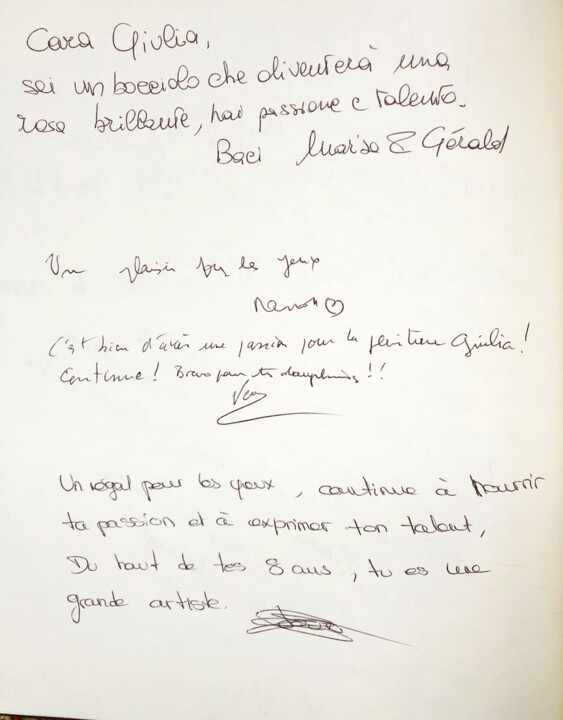 Cara Giulia,
sei un bocciolo che diventerà una
rosa brillante, hai passione e talento.
Baci Marisa & Gérald
Un plaisir pour les yeux
Manon
C'est bien d'avoir une passion pour la peinture Giulia!
Continue! Bravo pour tes dauphins!!
Un régal pour les yeux, continue à nourrir
ta passion et à exprimer ton talent,
Du haut de tes 8 ans, tu es une
grande artiste.